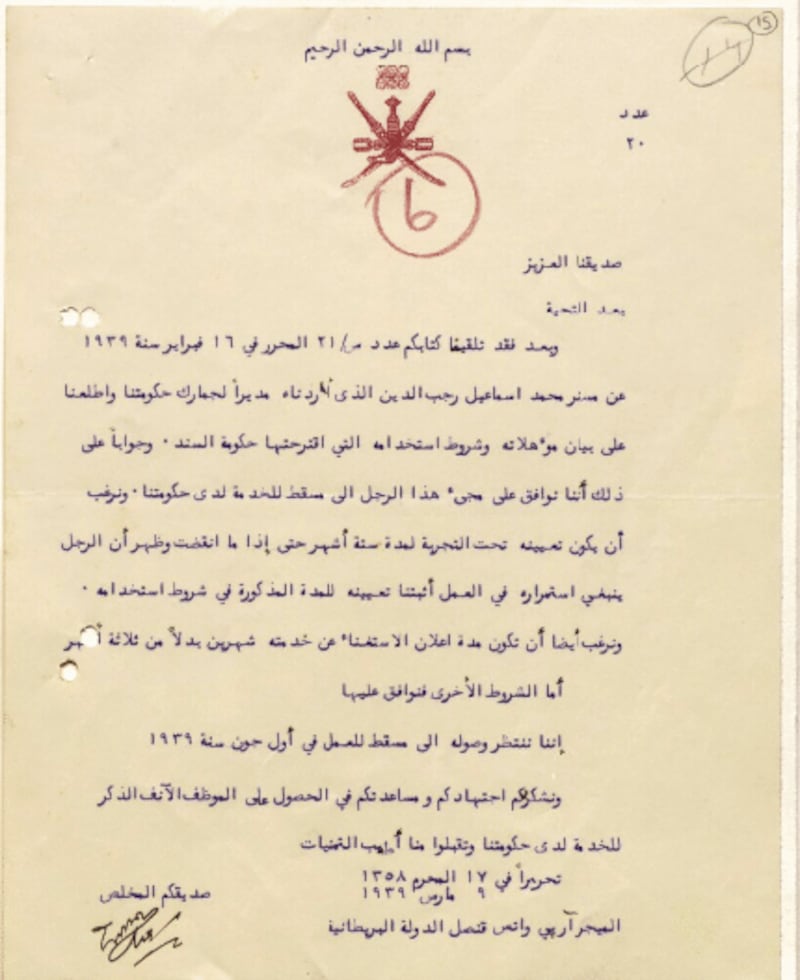 15
بسم الله الرحمن الرحيم
عدد
٢٠
6
صديقنا العزيز
بعد التحية
وبعد فقد تلقينا كتابكم عدد س/٢١ المحرر في ١٦ فبراير سنة ١٩٣٩
عن مستر محمد اسماعيل رجب الدين الذى أردناه مديراً لجمارك حكومتنا واطلعنا
على بيان موٴهلاته وشروط استخدامه التي اقترحتها حكومة السند ٠ وجواباً على
ذلك أننا نوافق على مجىء هذا الرجل الى مسقط للخدمة لدى حكومتنا ٠ ونرغب
أن يكون تعيينه تحت التجربة لمدة ستة أشهر حتى إذا ما انقضت وظهر أن الرجل
ينبغي استمراره في العمل أثبتنا تعيينه للمدة المذكورة في شروط استخدامه ٠
ونرغب أيضا أن تكون مدة اعلان الاستغناء عن خدمته شهرين بدلاً من ثلاثة
أما الشروط الأخرى فنوافق عليها
إننا ننتظر وصوله الى مسقط للعمل في أول جون سنة ١٩٣٩
ونشكركم اجتهادكم ومساعدتكم في الحصول على الموظف الآنف الذكر
للخدمة لدى حكومتنا وتقبلوا منا أطيب التمنيات
تحريراً في ١٧ المحرم ١٣٥٨
٩ مارس ١٩٣٩
صديقكم المخلص
الميجر آرپي واتس قنصل الدولة البريطانية